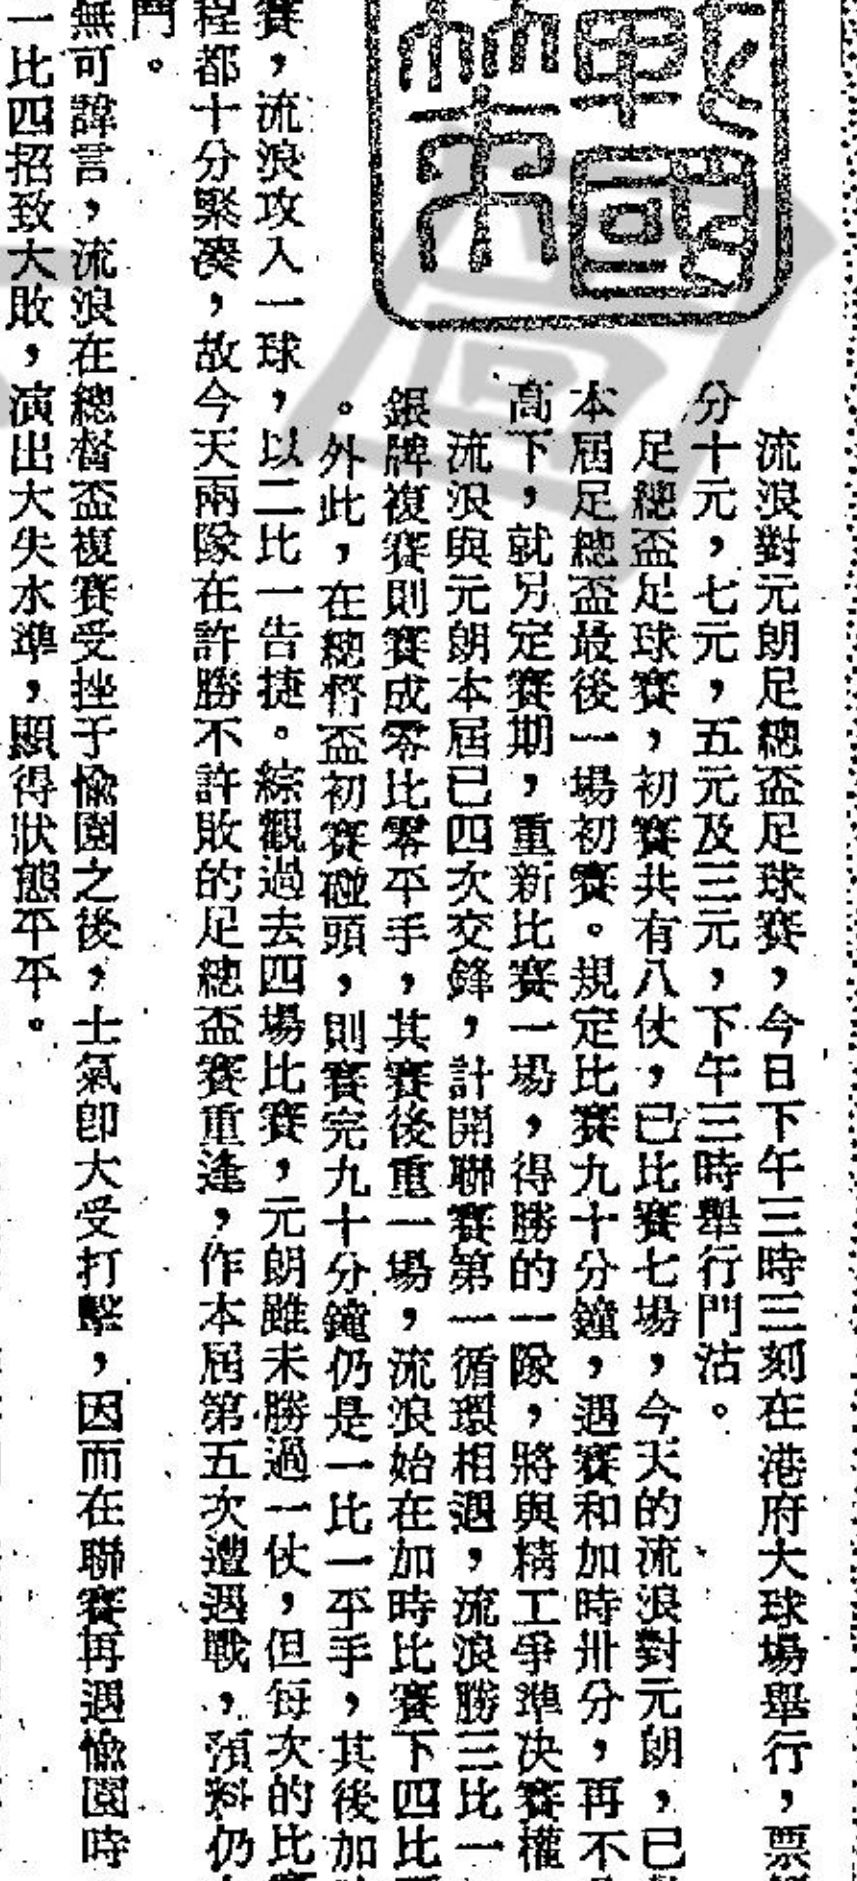 流浪對元朗足總盃足球賽，今日下午三時三刻在港府大球場舉行，票
分十元，七元，五元及三元，下午三時舉行門沽。
足總盃足球賽，初賽共有八仗，已比賽七場，今天的流浪對元朗，已
本屆足總盃最後一場初賽。規定比賽九十分鐘，遇賽和加時卅分，再不
高下，就另定賽期，重新比賽一場，得勝的一隊，將與精工爭準決賽權
流浪與元朗本屆已四次交鋒，計開聯賽第一循環相遇，流浪勝三比一
銀牌複賽則賽成零比零平手，其賽後重一場，流浪始在加時比賽下四比
。外此，在總督盃初賽碰頭，則賽完九十分鐘仍是一比一平手，其後加
賽，流浪攻入一球，以二比一告捷。綜觀過去四場比賽，元朗雖未勝過一仗，但每次的比賽
程都十分緊湊，故今天兩隊在許勝不許敗的足總盃賽重逢，作本屆第五次遭遇戰，預料仍
鬥。
無可諱言，流浪在總督盃複賽受挫于愉園之後，士氣卽大受打擊，因而在聯賽再遇愉園時
一比四招致大敗，演出大失水準，顯得狀態平平。